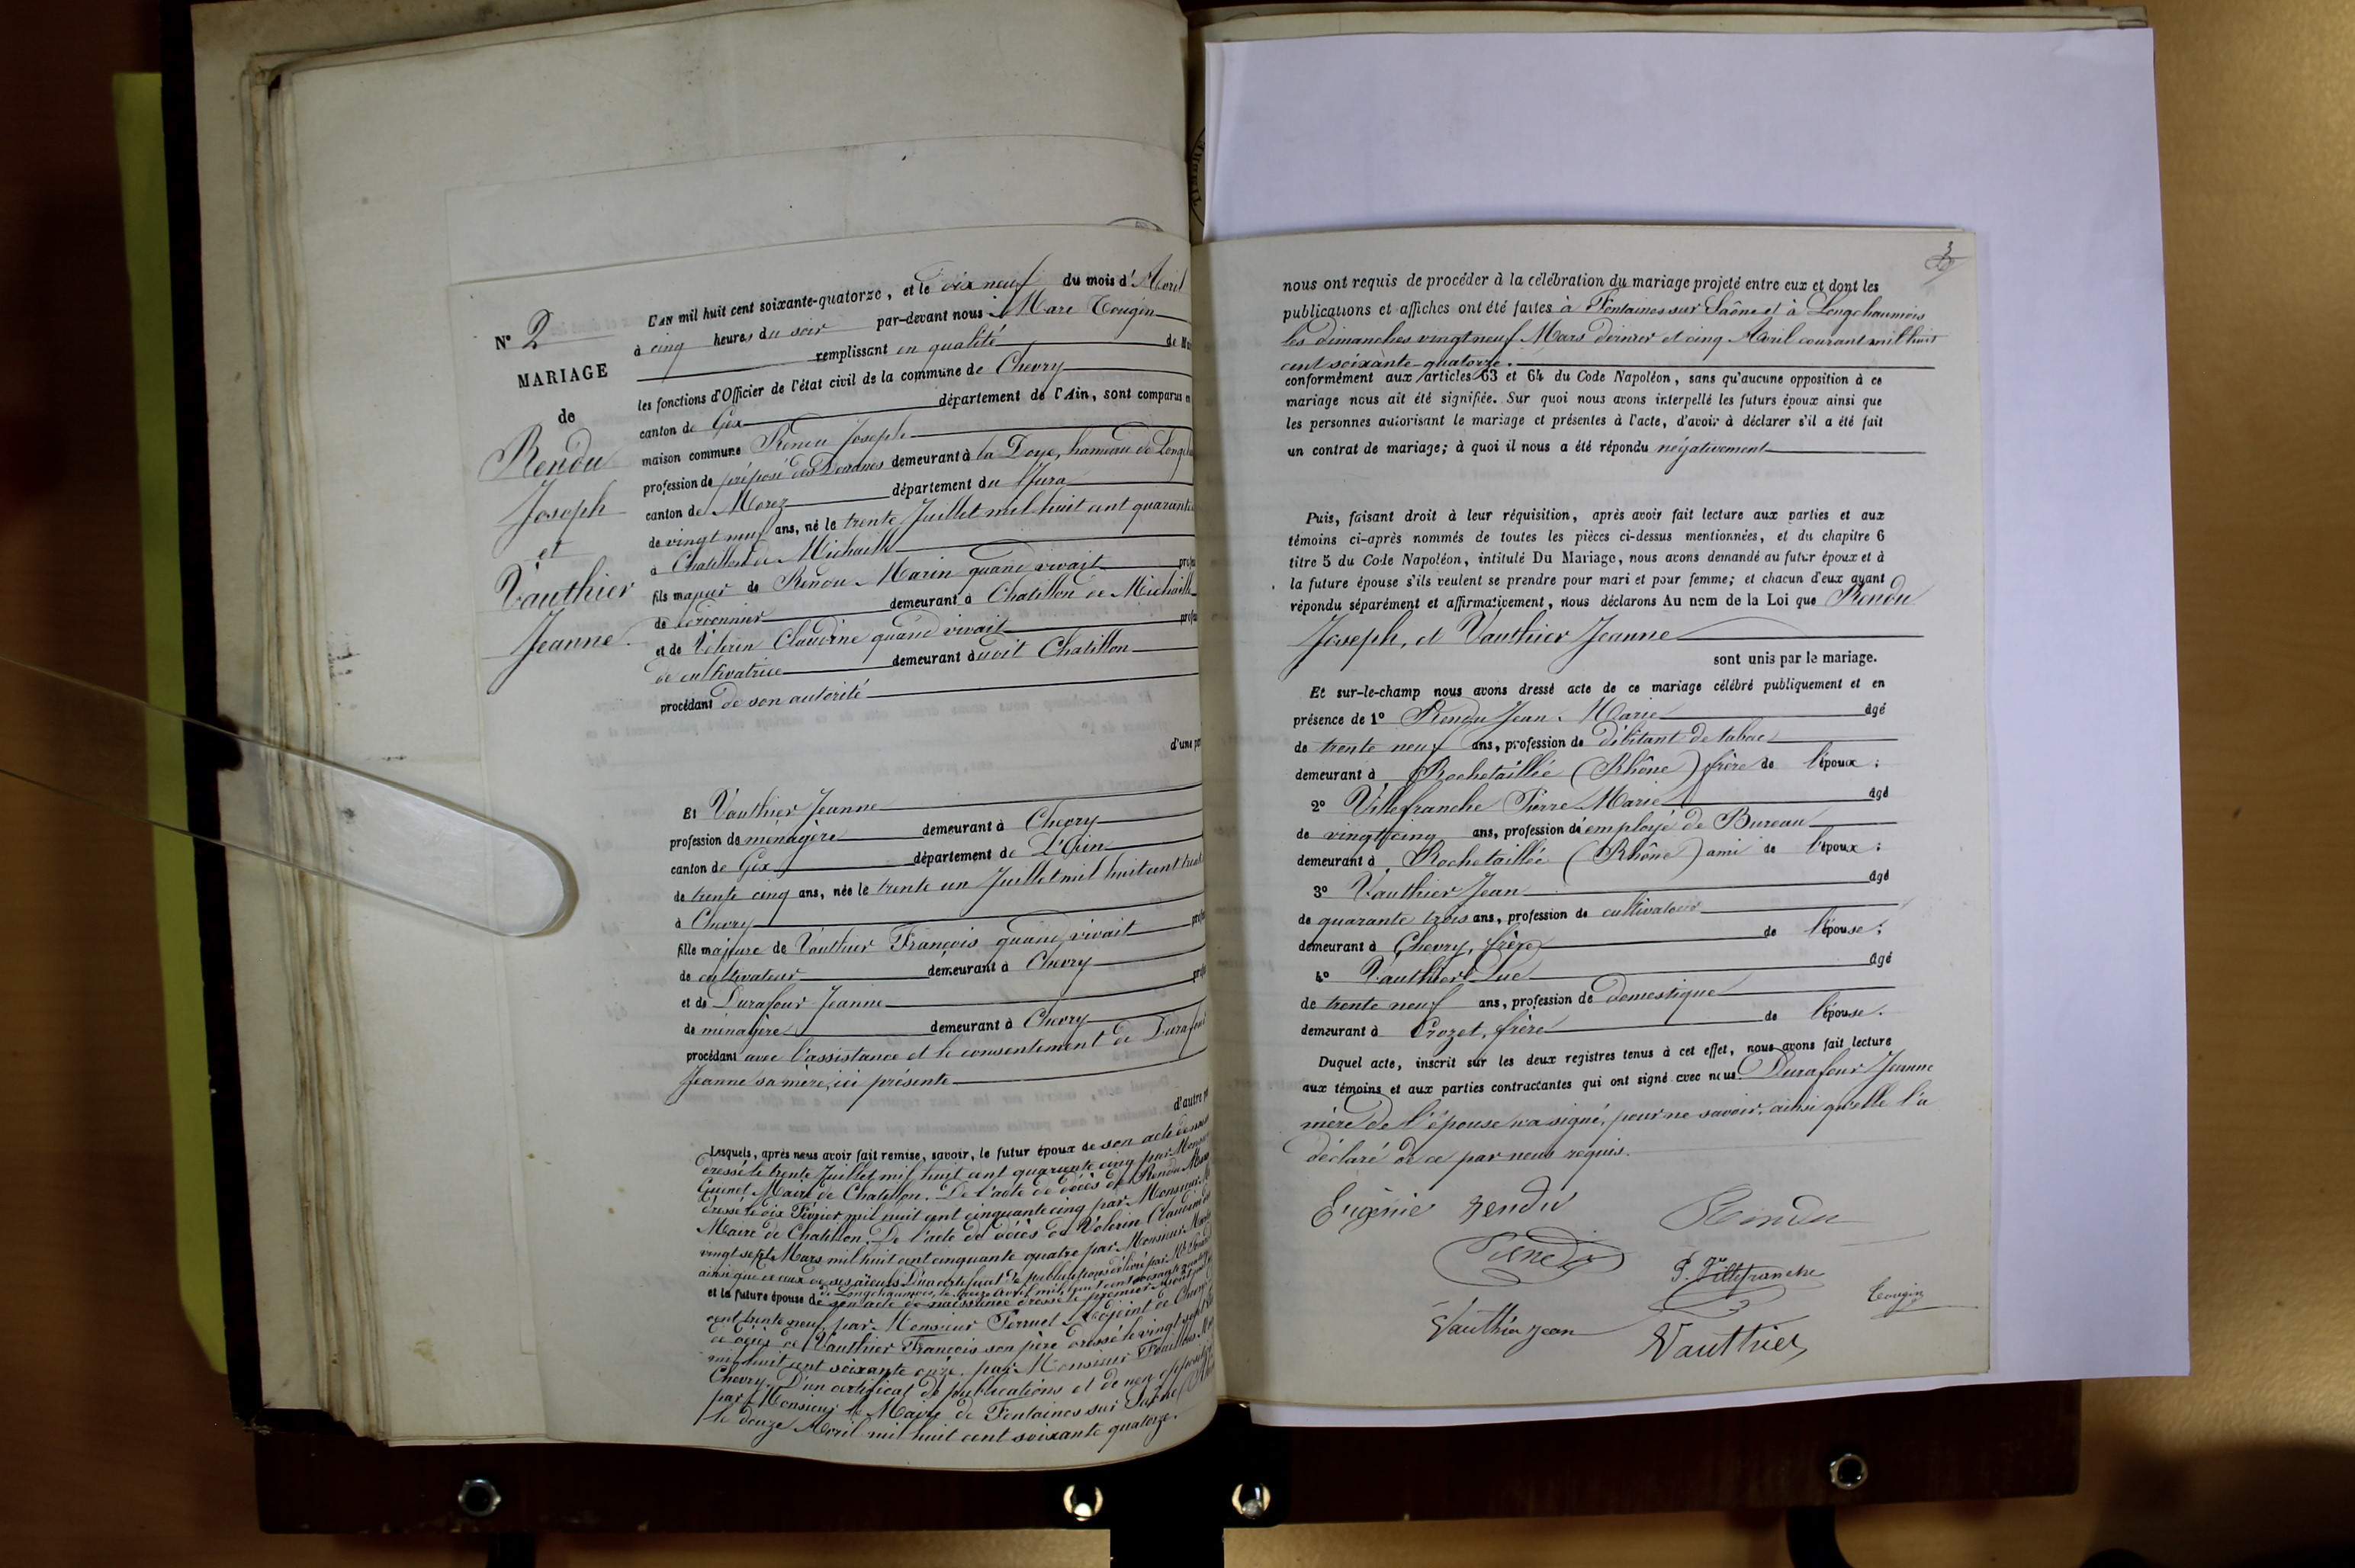 N° 2
MARIAGE
de
Rendu
Joseph
et
Vauthier
Jeanne.
L'AN mil huit cent soixante-quatorze, et le dix neuf du mois d'Avril
à cinq heures du soir par-devant nous Marc Tougin
remplissant en qualité de
les fonctions d'Officier de l'état civil de la commune de Chevry
canton de Gex département de l'Ain, sont comparus en
maison commune Rendu Joseph
profession de préposé des Douanes demeurant à la Doye, hameau de
canton de Morez département du Jura
de vingt neuf ans, né le trente Juillet mil huit cent quarante
à Chatillon de Michaille
fils majeur de Rendu Marin quand vivait
de demeurant à Chatillon de Michaille
et de Volerin Claudine quand vivait
de cultivatrice demeurant audit Chatillon
procédant de son autorité
Et Vauthier Jeanne
profession de ménagère demeurant à Chevry
canton de Gex département de L'Ain
de trente cinq ans, née le trente un Juillet mil huit cent
à Chevry
fille majeure de Vauthier François quand vivait
de cultivateur demeurant à Chevry
et de Durafour Jeanne
de ménagère demeurant à Chevry
procédant avec l'assistance et le consentement de
Jeanne sa mère, ici présente
d'autre
Lesquels, après nous avoir fait remise, savoir, le futur époux de son acte de
dressé le trente Juillet mil huit cent quarante cinq par
Guinet Maire de Chatillon. De l'acte de décès de Rendu
dressé le dix Février mil huit cent cinquante cinq par Monsieur
Maire de Chatillon. De l'acte de décès de Volerin Claudine
vingt sept Mars mil huit cent cinquante quatre par Monsieur
ainsi que ceux de ses aïeuls D'un certificat de publications délivré par
de Longchaumois, le douze Avril mil huit cent soixante
et la future épouse de son acte de naissance dressé le premier
cent trente neuf, par Monsieur Perruet Adjoint de
de décès de Vauthier François son père dressé le vingt sept
mil huit cent soixante onze, par Monsieur
Chevry. D'un certificat de publications et de non
par Monsieur le Maire de Fontaines sur Saône
le douze Avril mil huit cent soixante quatorze.
3
nous ont requis de procéder à la célébration du mariage projeté entre eux et dont les
publications et affiches ont été faites à Fontaines sur Saône et à Longchaumois
les dimanches vingt neuf Mars dernier et cinq Avril courant mil huit
cent soixante quatorze.
conformément aux articles 63 et 64 du Code Napoléon, sans qu'aucune opposition à ce
mariage nous ait été signifiée. Sur quoi nous avons interpellé les futurs époux ainsi que
les personnes autorisant le mariage et présentes à l'acte, d'avoir à déclarer s'il a été fait
un contrat de mariage; à quoi il nous a été répondu négativement
Puis, faisant droit à leur réquisition, après avoir fait lecture aux parties et aux
témoins ci-après nommés de toutes les pièces ci-dessus mentionnées, et du chapitre 6
titre 5 du Code Napoléon, intitulé Du Mariage, nous avons demandé au futur époux et à
la future épouse s'ils veulent se prendre pour mari et pour femme; et chacun d'eux ayant
répondu séparément et affirmativement, nous déclarons Au nom de la Loi que Rendu
Joseph, et Vauthier Jeanne
sont unis par le mariage.
Et sur-le-champ nous avons dressé acte de ce mariage célébré publiquement et en
présence de 1° Rendu Jean-Marie âgé
de trente neuf ans, profession de débitant de tabac
demeurant à Rochetaillée (Rhône) frère de l'époux;
2° Villefranche Pierre Marie âgé
de vingt cinq ans, profession d'employé de Bureau
demeurant à Rochetaillée (Rhône) ami de l'époux;
3° Vauthier Jean âgé
de quarante trois ans, profession de cultivateur
demeurant à Chevry, frère de l'épouse;
4° Vauthier Luc âgé
de trente neuf ans, profession de domestique
demeurant à Crozet, frère de l'épouse.
Duquel acte, inscrit sur les deux registres tenus à cet effet, nous avons fait lecture
aux témoins et aux parties contractantes qui ont signé avec nous. Durafour Jeanne
mère de l'épouse n'a signé, pour ne savoir, ainsi qu'elle l'a
déclaré de ce par nous requis.
Eugénie Rendu Rendu
Rendu P. Villefranche
Tougin
Vauthier Jean Vauthier